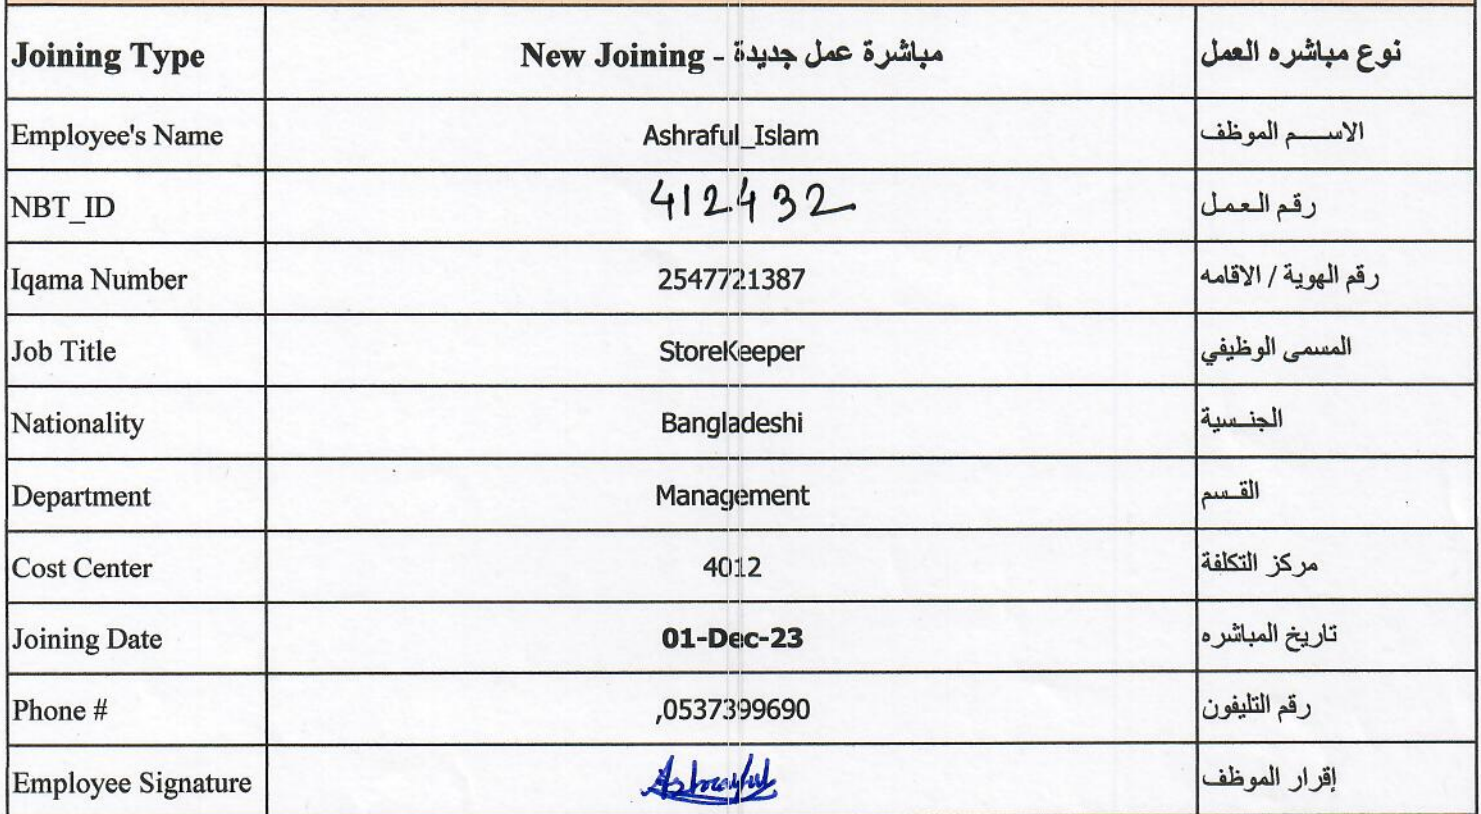 Joining Type New Joining - مباشرة عمل جديدة نوع مباشره العمل
Employee's Name Ashraful_Islam الاســـم الموظف
NBT_ID 412432 رقم العمل
Iqama Number 2547721387 رقم الهوية / الاقامه
Job Title StoreKeeper المسمى الوظيفي
Nationality Bangladeshi الجنــسية
Department Management القــسم
Cost Center 4012 مركز التكلفة
Joining Date 01-Dec-23 تاريخ المباشره
Phone # ,0537399690 رقم التليفون
Employee Signature Ashraful إقرار الموظف